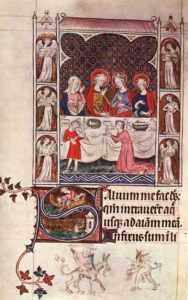 Saluum me fac ds
qm intrauert aq
usq ad aiam mea
Infixus sum i li